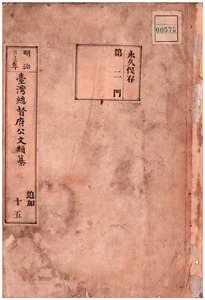 00575
永久保存
第二門
明治
臺灣總督府公文類纂
追加
十五